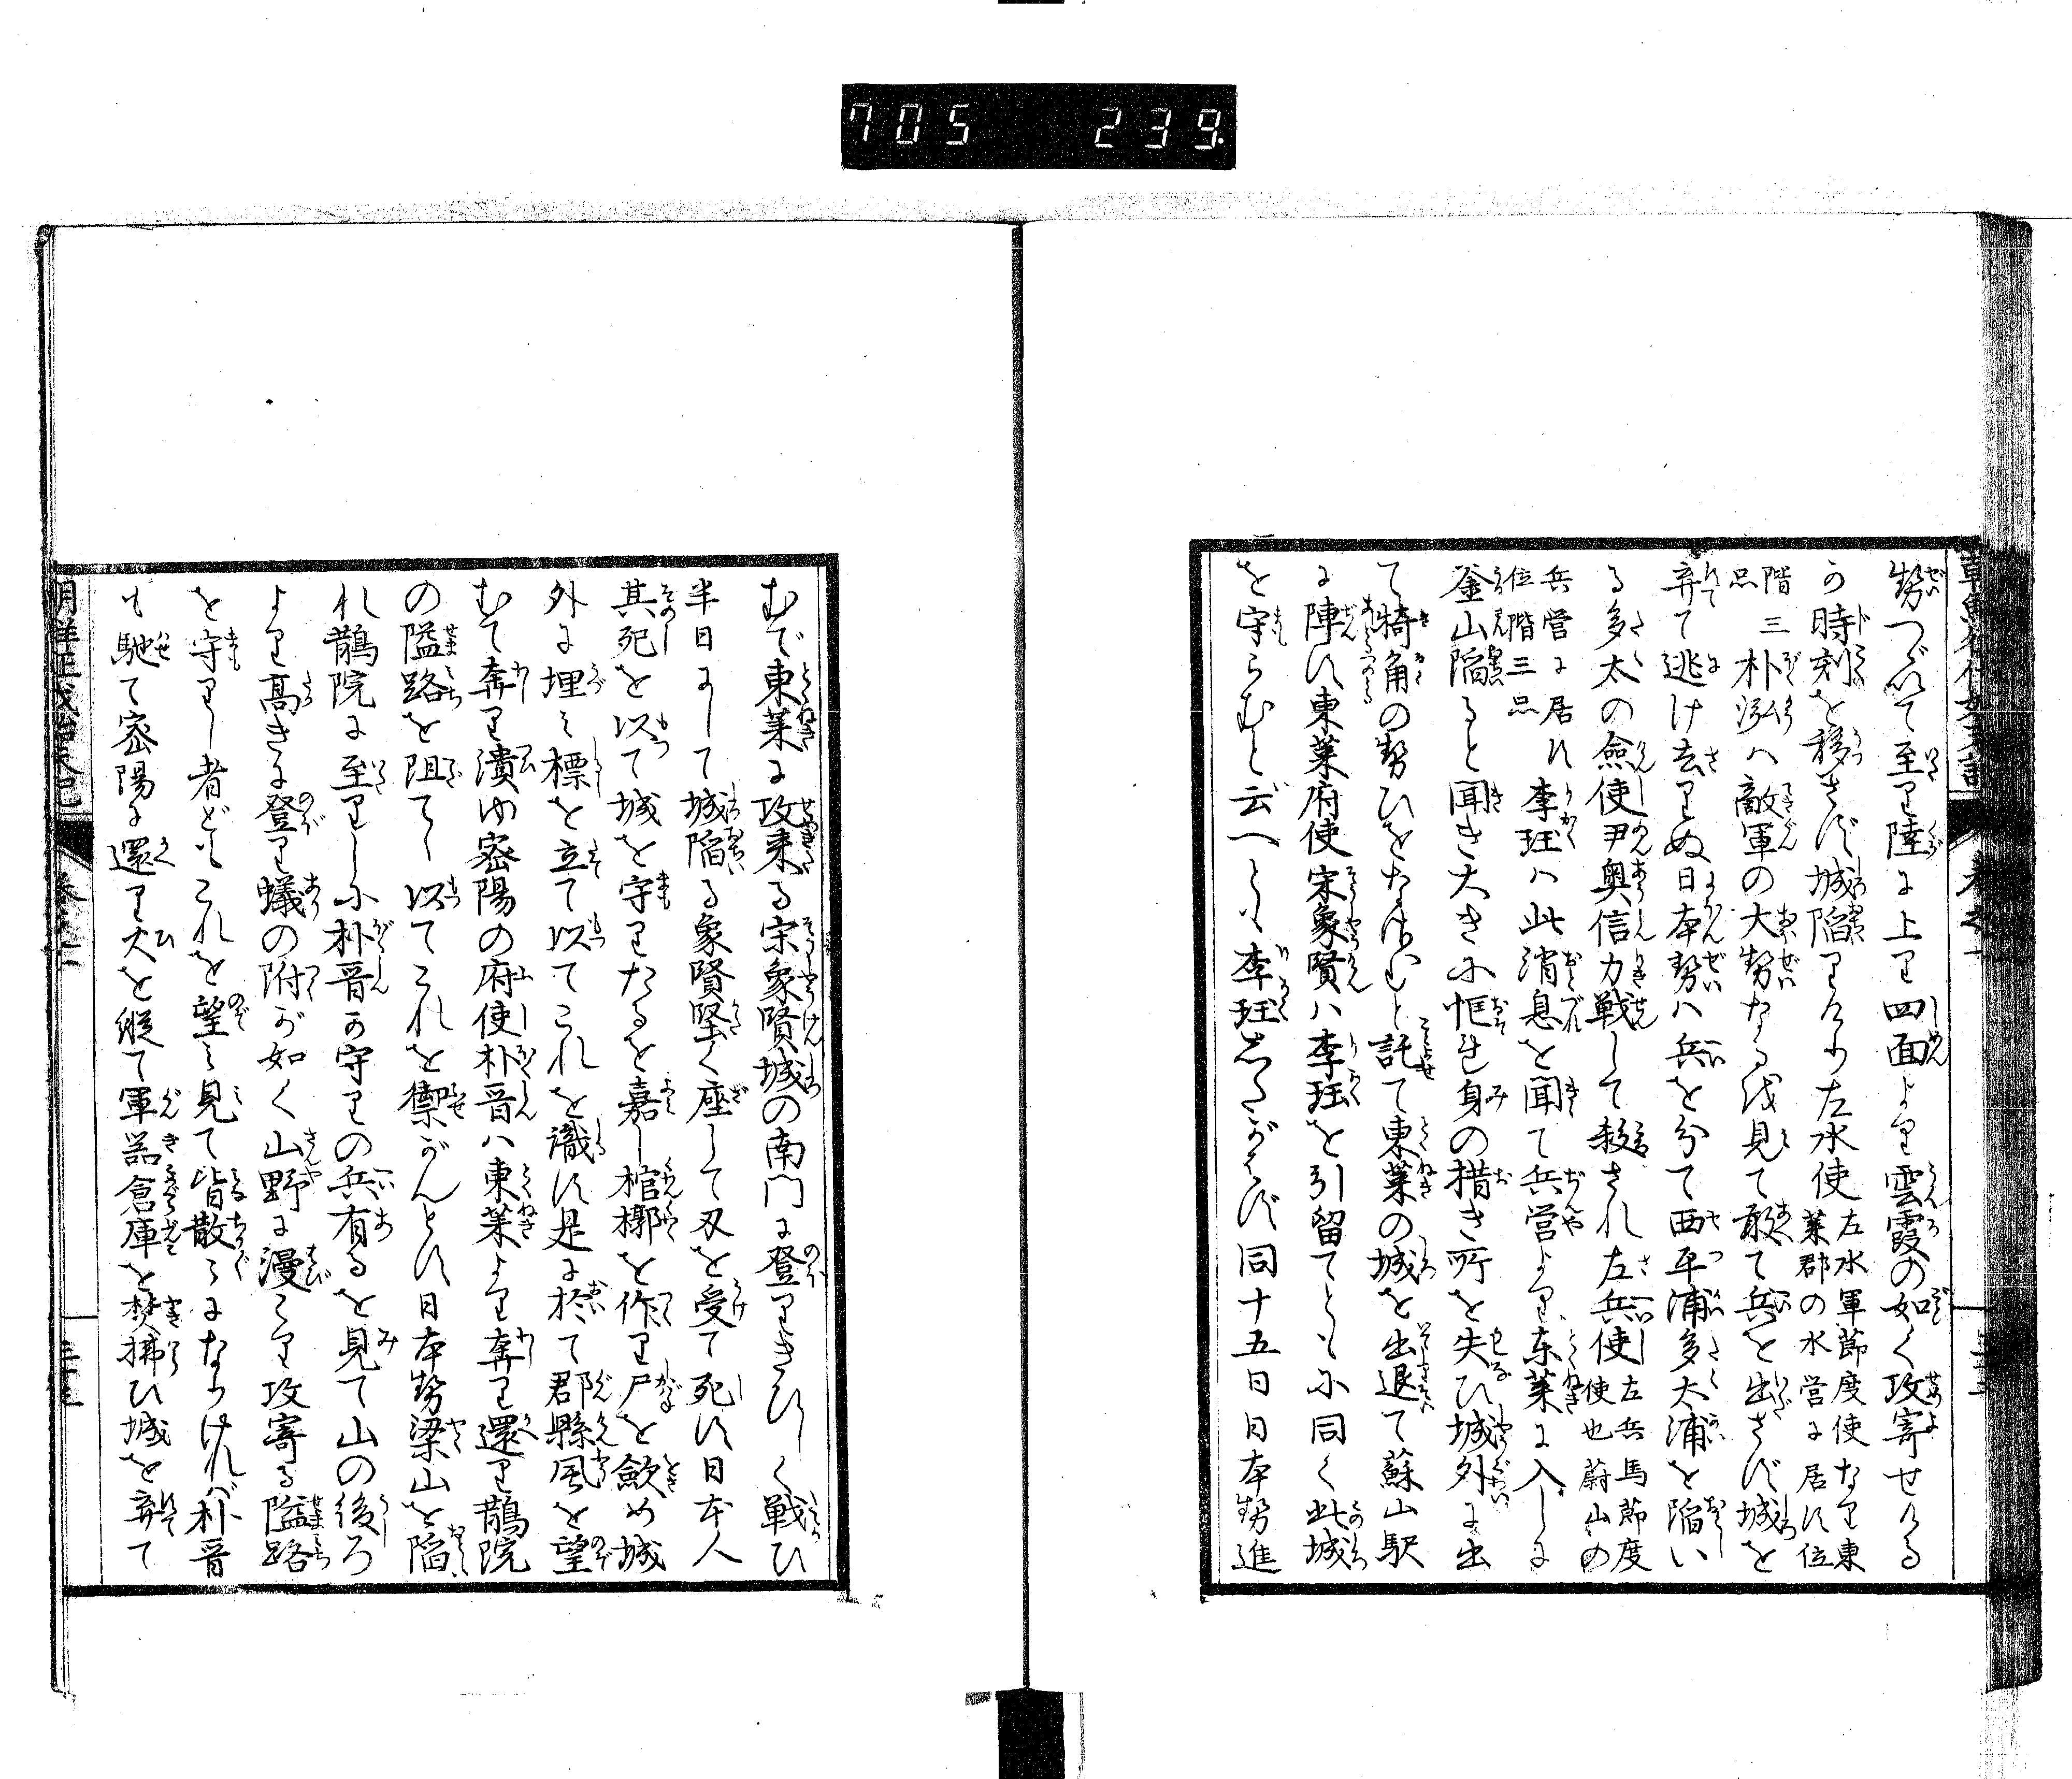 705 239
勢つゞいて至り陸に上り四面より雲霞の如く攻寄せける
が時刻を移さず城陥りけり左水使左水軍節度使なり東
莱郡の水営に居す位
階三
品朴泓ハ敵軍の大勢なるを見て敢て兵を出さず城を
弃て逃け去りぬ日本勢ハ兵を分て西平浦多太浦を陥い
る多太の僉使尹興信力戦して殺され左兵使左兵馬節度
使也蔚山の
兵営に居す
位階三品李珏ハ此消息を聞て兵営より东莱に入しに
釜山陥ると聞き大きに恇れ身の措き所を失ひ城外に出
て犄角の勢ひをなさむと託て東莱の城を出退て蘇山駅
に陣す東莱府使宋象賢ハ李珏を引留てともに同く此城
を守らむと云へとも李珏したがはず同十五日日本勢進
むで東莱に攻来る宋象賢城の南門に登りきびしく戦ひ
半日にして城陥る象賢堅く座して刃を受て死す日本人
其死を以て城を守りたるを嘉し棺槨を作り尸を歛め城
外に埋み標を立て以てこれを識す是に於て郡縣風を望
むて奔り潰ゆ密陽の府使朴晋ハ東莱より奔り還り鵲院
の隘路を阻てゝ以てこれを禦がんとす日本勢梁山を陥
れ鵲院に至りしに朴晋が守りの兵有るを見て山の後ろ
より高きに登り蟻の附が如く山野に漫こり攻寄る隘路
を守りし者どもこれを望み見て皆散々になりけれバ朴晋
も馳て密陽に還り火を縦て軍器倉庫を焚拂ひ城を弃て